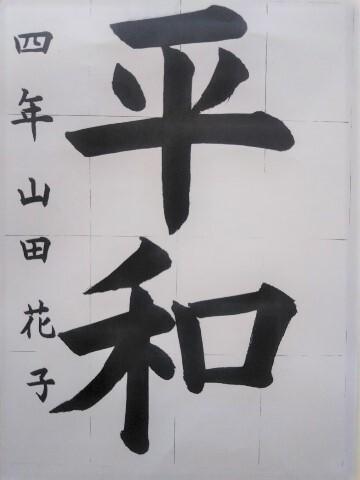 平和
四年 山田花子